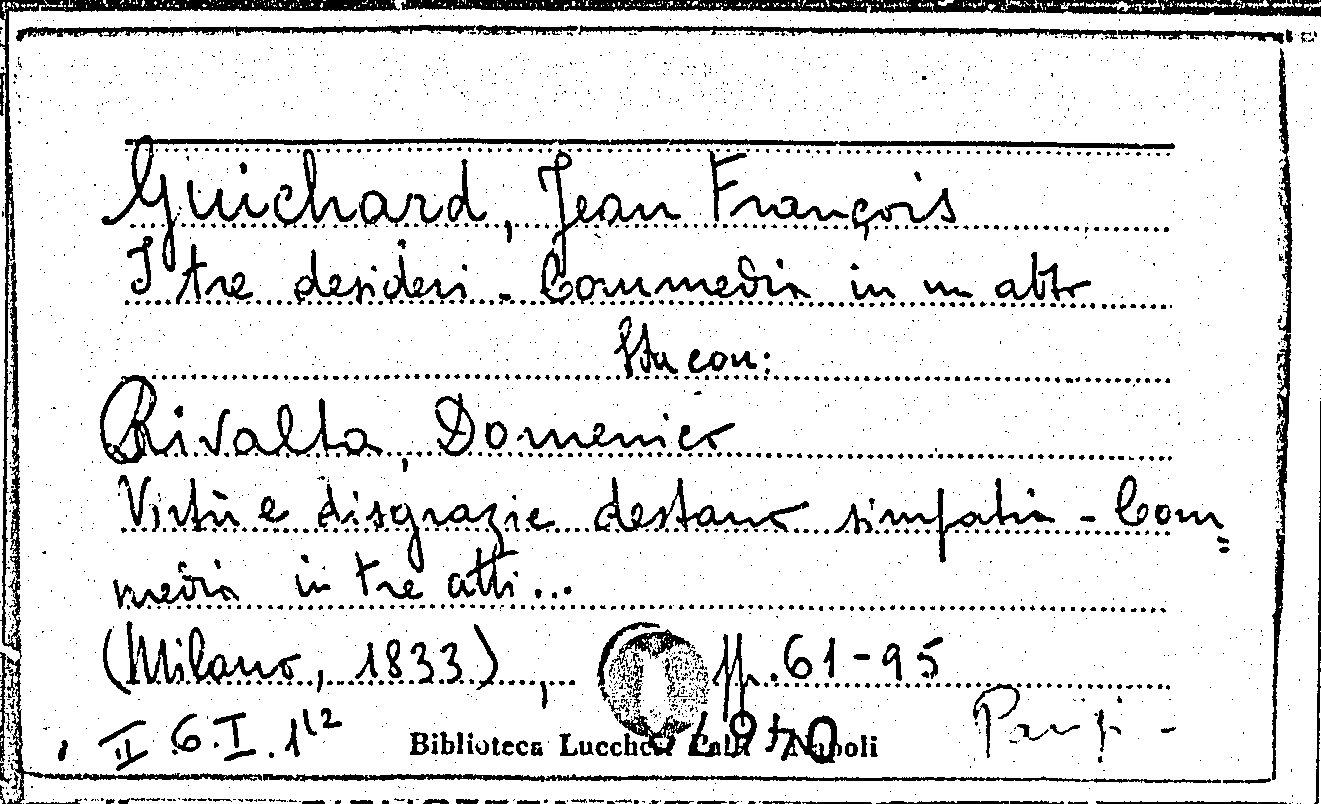 Guichard, Jean François
I tre desideri - Commedia in un atto
Sta con:
Rivalta, Domenico
Virtù e disgrazie destano simpatia - Com=
media in tre atti...
(Milano, 1833), pp. 61-95
II 6.I.1(12
Biblioteca Lucchesi Palli Napoli